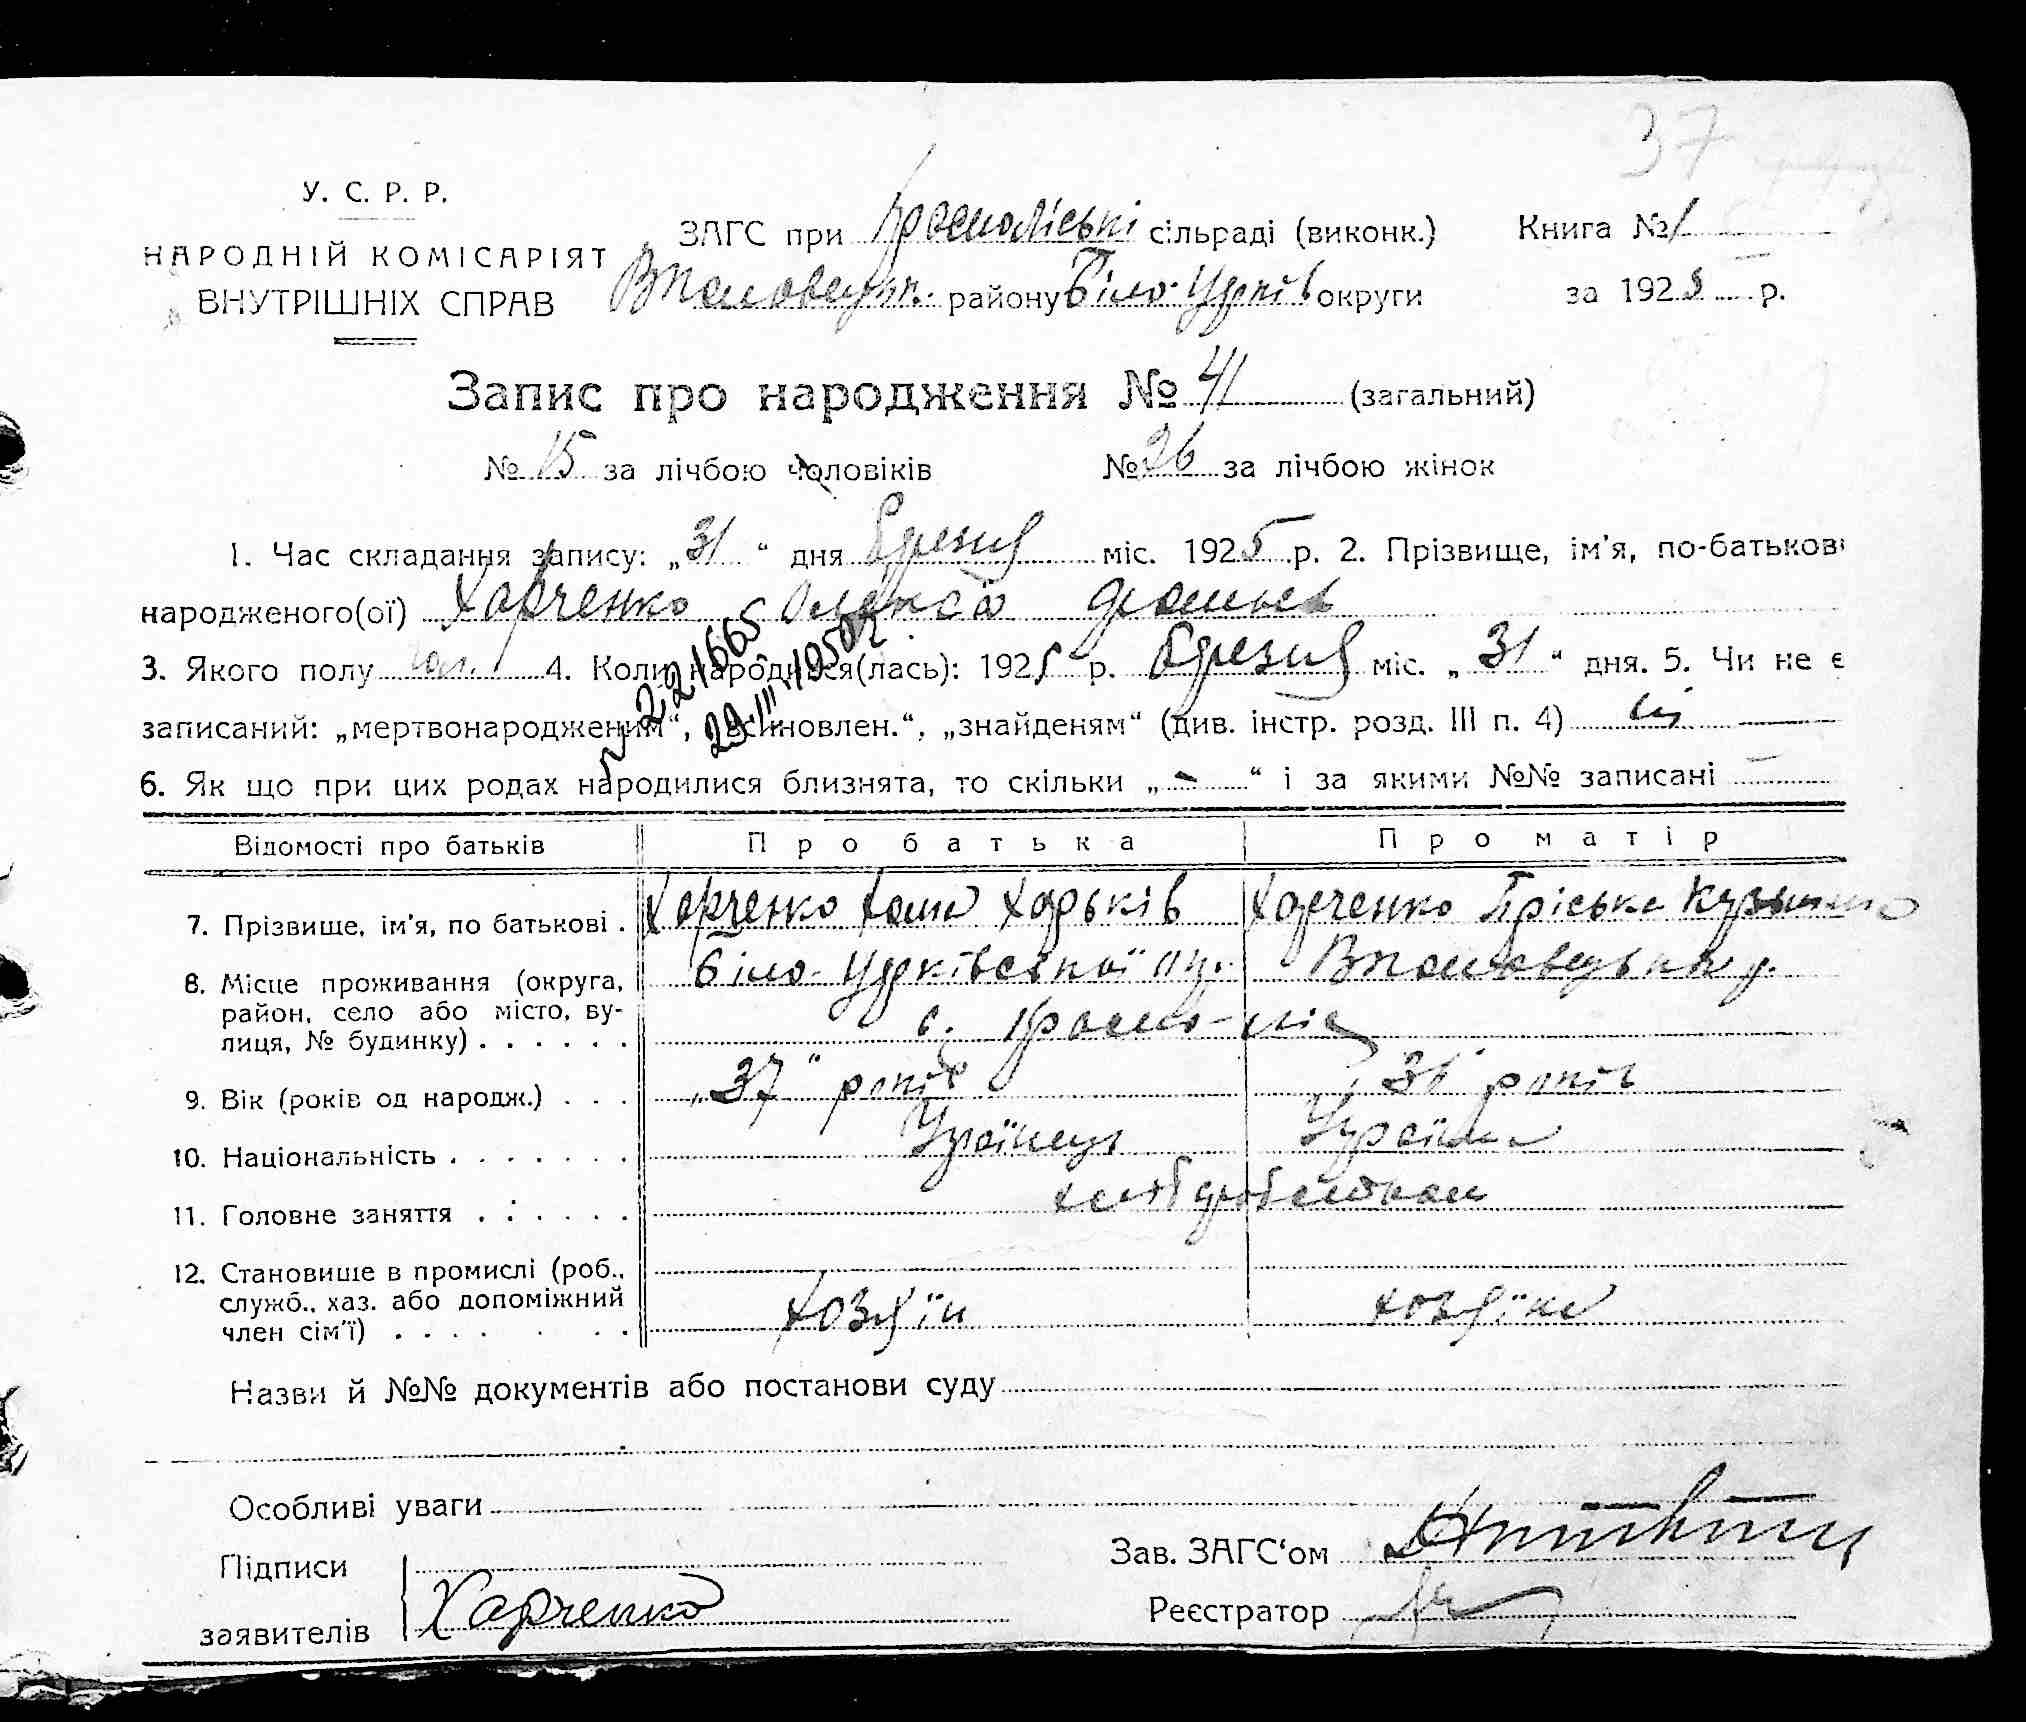 37
У. С. Р. Р.
НАРОДНІЙ КОМІСАРІЯТ
ВНУТРІШНІХ СПРАВ
ЗАГС при сільраді (виконк.)
району Біло-Церків округи
Книга № 1
за 1925 р.
Запис про народження № 41 (загальний)
№ 15 за лічбою чоловіків № 26 за лічбою жінок
1. Час складання запису: „31“ дня березня міс. 1925 р. 2. Прізвище, ім'я, по-батькові
народженого(ої) Харченко Олекса
3. Якого полу чол. 4. Коли народився(лась): 1925 р. березня міс. „31“ дня. 5. Чи не є
записаний: „мертвонародженим“, „всиновлен.“, „знайденям“ (див. інстр. розд. III п. 4) ні
6. Як що при цих родах народилися близнята, то скільки „-“ і за якими №№ записані —
Відомості про батьків Про батька Про матір
7. Прізвище, ім'я, по батькові . Харченко Хома Харьків Харченко Пріська
8. Місце проживання (округа, Біло-Церківської
район, село або місто, ву-
лиця, № будинку) . . . . . . с.
9. Вік (років од народж.) . . . „37“ років років
10. Національність . . . . . . . Українець Українка
11. Головне заняття . . . . . .
12. Становище в промислі (роб.,
служб., хаз. або допоміжний
член сім'ї) . . . . . . . хозяїн хозяїка
Назви й №№ документів або постанови суду
Особливі уваги
Підписи
заявителів Харченко
Зав. ЗАГС'ом
Реєстратор